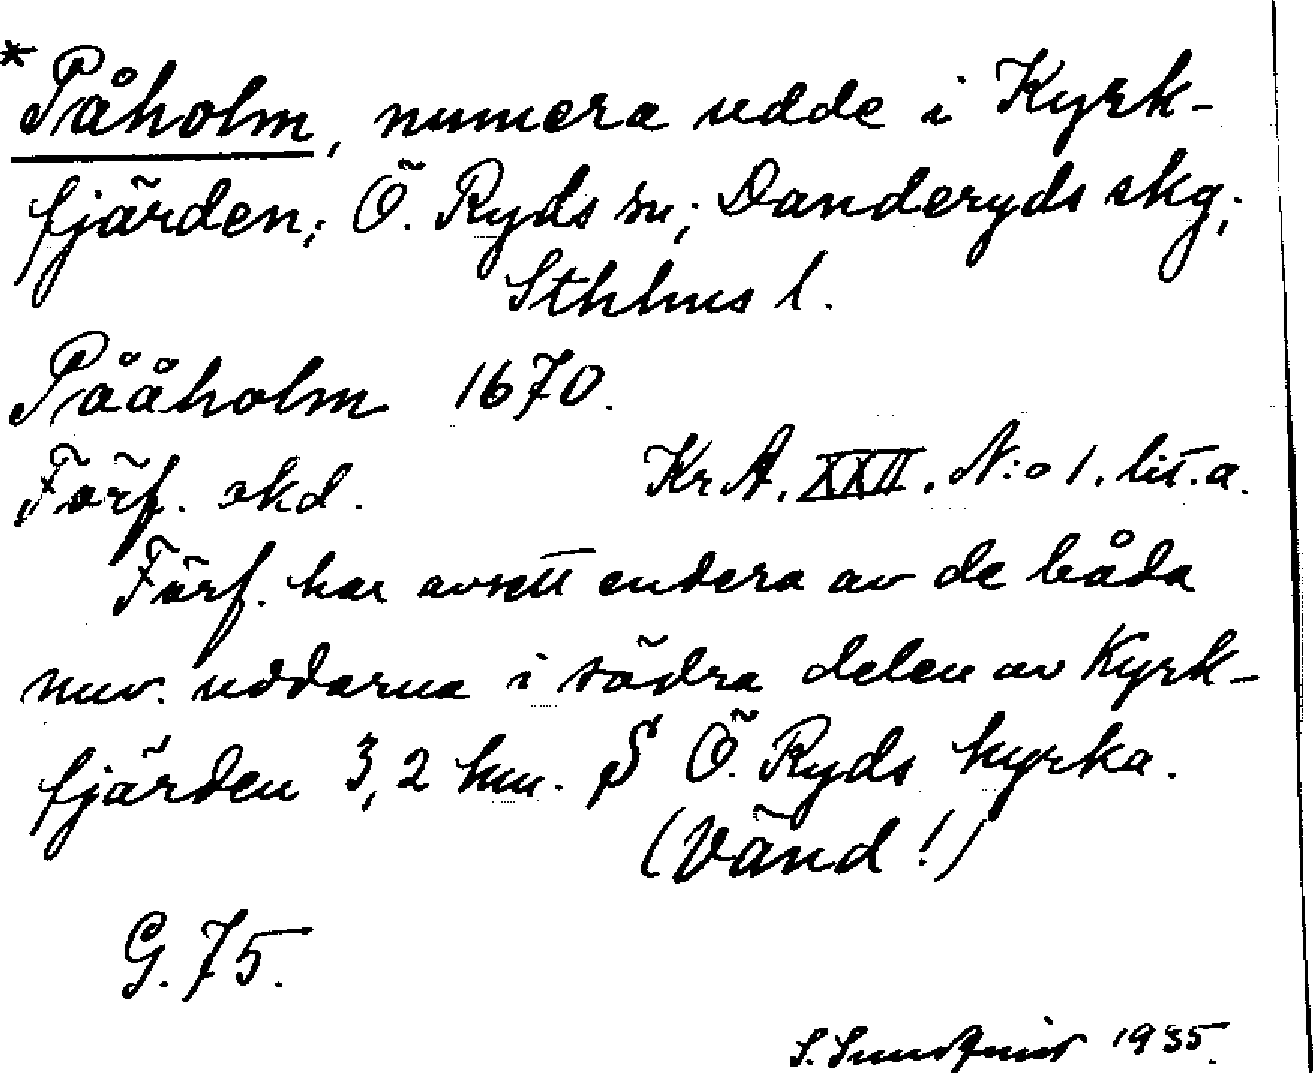 *Påholm, numera udde i Kyrk-
fjärden; Ö. Ryds sn; Danderyds skg;
Sthlms l.
Pååholm 1670.
Förf. okd. Kr A. XXII. N:o 1. lit. a.
Förf. har avsett endera av de båda
nuv. uddarna i södra delen av Kyrk-
fjärden 3,2 km. S Ö. Ryds kyrka.
(Vänd!)
G. 75.
S. 1935.